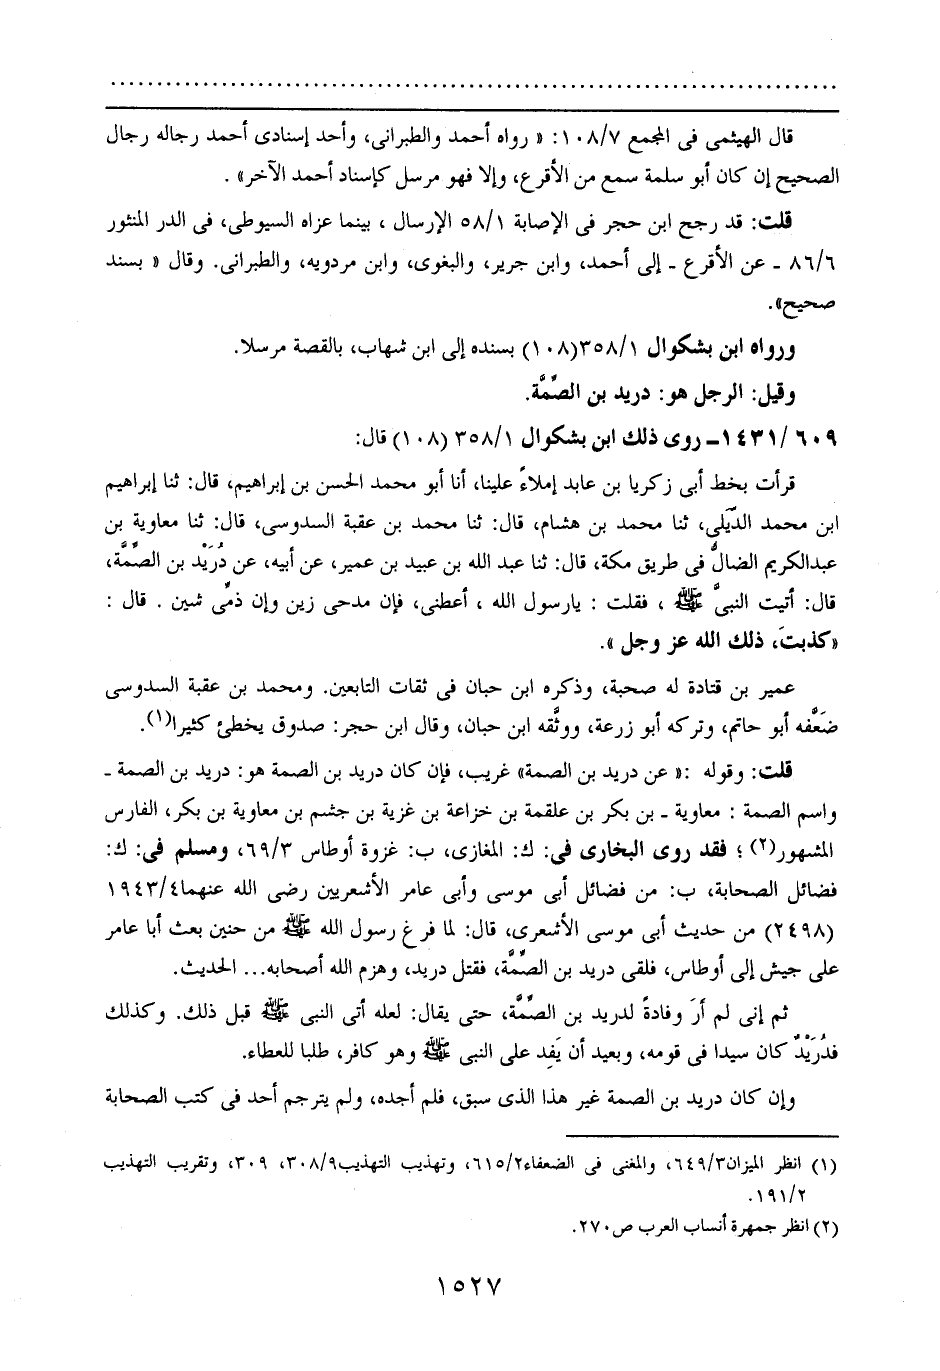 قال الهيثمى فى المجمع ١٠٨/٧: « رواه أحمد والطبرانى، وأحد إسنادى أحمد رجاله رجال
الصحيح إن كان أبو سلمة سمع من الأقرع، وإلا فهو مرسل كإسناد أحمد الآخر» .
قلت: قد رجح ابن حجر فى الإصابة ٥٨/١ الإرسال ، بينما عزاه السيوطى، فى الدر المنثور
٨٦/٦ ـ عن الأقرع ـ إلى أحمد، وابن جرير، والبغوى، وابن مردويه، والطبرانى. وقال « بسند
صحيح».
ورواه ابن بشكوال ٣٥٨/١(١٠٨) بسنده إلى ابن شهاب، بالقصة مرسلا.
وقيل: الرجل هو: دريد بن الصِّمَّة.
١٤٣١/٦٠٩ـ روى ذلك ابن بشكوال ٣٥٨/١ (١٠٨) قال:
قرأت بخط أبى زكريا بن عابد إملاءً علينا، أنا أبو محمد الحسن بن إبراهيم، قال: ثنا إبراهيم
ابن محمد الدَّيلى، ثنا محمد بن هشام، قال: ثنا محمد بن عقبة السدوسى، قال: ثنا معاوية بن
عبدالكريم الضالُّ فى طريق مكة، قال: ثنا عبد الله بن عبيد بن عمير، عن أبيه، عن دُرَيْد بن الصِّمَّة،
قال: أتيت النبىَّ ﷺ ، فقلت : يارسول الله ، أعطنى، فإن مدحى زين وإن ذمِّى شين . قال :
«كذبتَ، ذلك الله عز وجل ».
عمير بن قتادة له صحبة، وذكره ابن حبان فى ثقات التابعين. ومحمد بن عقبة السدوسى
ضَعَّفه أبو حاتم، وتركه أبو زرعة، ووثَّقه ابن حبان، وقال ابن حجر: صدوق يخطئ كثيرا(١).
قلت: وقوله :« عن دريد بن الصمة» غريب، فإن كان دريد بن الصمة هو: دريد بن الصمة ـ
واسم الصمة : معاوية ـ بن بكر بن علقمة بن خزاعة بن غزية بن جشم بن معاوية بن بكر، الفارس
المشهور(٢) ؛ فقد روى البخارى فى: ك: المغازى، ب: غزوة أوطاس ٦٩/٣، ومسلم فى: ك:
فضائل الصحابة، ب: من فضائل أبى موسى وأبى عامر الأشعريين رضى الله عنهما١٩٤٣/٤
(٢٤٩٨) من حديث أبى موسى الأشعرى، قال: لما فرغ رسول الله ﷺ من حنين بعث أبا عامر
على جيش إلى أوطاس، فلقى دريد بن الصِّمَّة، فقتل دريد، وهزم الله أصحابه... الحديث.
ثم إنى لم أرَ وفادةً لدريد بن الصِّمَّة، حتى يقال: لعله أتى النبى ﷺ قبل ذلك. وكذلك
فدُرَيْدٌ كان سيدا فى قومه، وبعيد أن يَفِد على النبى ﷺ وهو كافر، طلبا للعطاء.
وإن كان دريد بن الصمة غير هذا الذى سبق، فلم أجده، ولم يترجم أحد فى كتب الصحابة
(١) انظر الميزان٦٤٩/٣، والمغنى فى الضعفاء٦١٥/٢، وتهذيب التهذيب٣٠٨/٩، ٣٠٩، وتقريب التهذيب
١٩١/٢.
(٢) انظر جمهرة أنساب العرب ص٢٧٠.
١٥٢٧